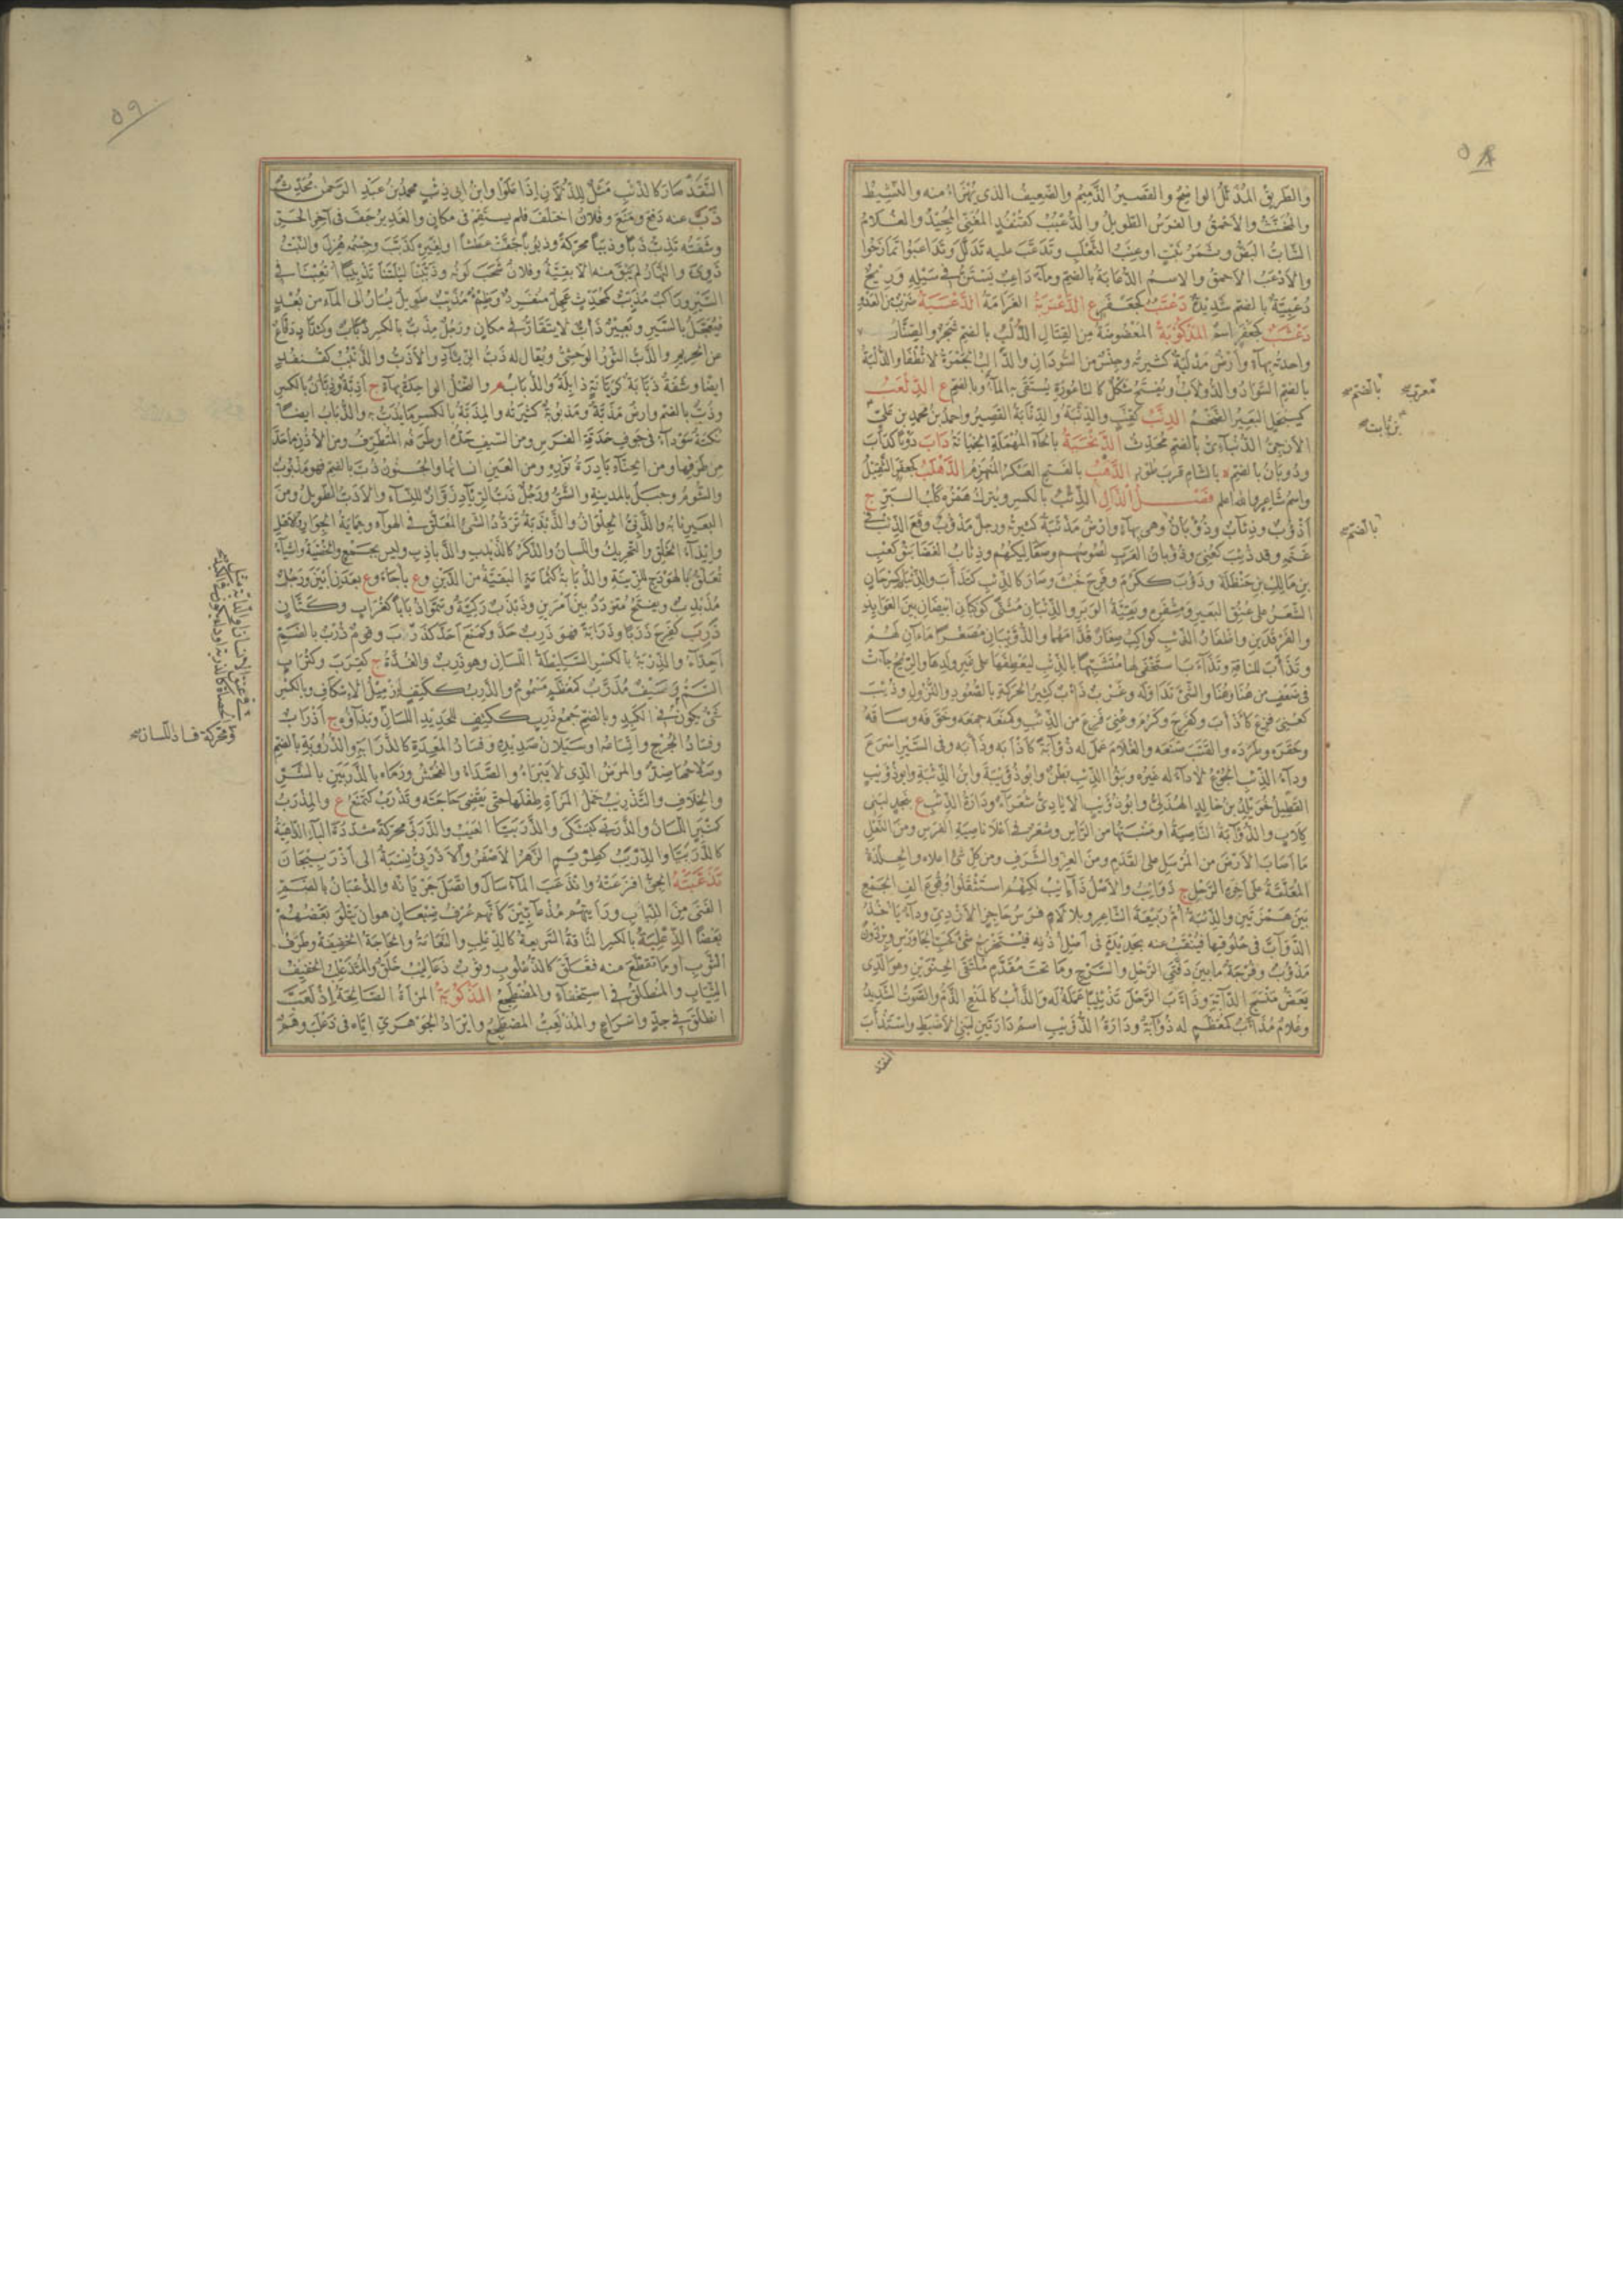 ٥٨
والطريق المُذَلَّلُ الواضِحُ والقصيرُ الدَّميم والضعيفُ الذى يُهْزَأُ منه والنشيط
والمخنَّث والأحمقُ والفرسُ الطويلُ والدُّعْبُبُ كقُنْفُذٍ المُغَنِّى المُجِيدُ والغلامُ
الشابُّ البَضُّ وثَمَرُ نَبْتٍ او عِنَبُ الثَّعْلَبِ وتَدَعَّبَ عليه تَدَلَّلَ وتَدَاعَبُوا تَمَازَحُوا
والأدْعَبُ الأحمقُ والاسمُ الدُّعَابَةُ بالضم وماءٌ دَاعِبٌ يَسْتَنُّ فى سَيْلِهِ ورِيحٌ
دُعْبِيَّةٌ بالضم شَدِيدَةٌ دَعْتَبٌ كجَعْفَرٍ ع الدَّعْرَبَةُ العَرَامَةُ الدَّعْسَبَةُ ضَرْبٌ من العَدْوِ
دَعْشَبٌ كجَعْفَرٍ اسمٌ المَدْكُوبَةُ المَعْضُوضَةُ من القِتَالِ الدُّلْبُ بالضم شَجَرٌ والصِّنَّارُ
واحدته بهاء وأرضٌ مَدْلَبَةٌ كَثِيرَتُهُ وجِنْسٌ من السُّودَانِ والدَّالِبُ الجَمْرَةُ لا تُطْفَأُ والدُّلْبَةُ
بالضم السَّوَادُ والدُّولَابُ ويُفْتَحُ شَكْلٌ كالنَّاعُورَةِ يُسْتَقَى به الماءُ وبالضم ع الدِّلَعْبُ
كسِبَحْلٍ البَعِيرُ الضَّخْمُ الدِّنَّبُ كقِنَّبٍ والدِّنَّبَةُ والدِّنَّابَةُ القَصِيرُ وأحمد بن محمد بن عَلِيِّ
الأزَجِيُّ الدُّنْبَائِىُّ بالضم مُحَدِّثٌ الدَّنْحَبَةُ بالحاء المُهْمَلَةِ الخِيَانَةُ دَابَ دَوْبًا كدَأَبَ
ودُوبَانُ بالضم ة بالشام قربَ صُورَ الدَّهْبُ بالفتح العَسْكَرُ المُنْهَزِمُ الدَّهْلَبُ كجعفر الثَّقِيلُ
واسمُ شَاعِرٍ والله أعلم فَصْلُ الذَّالِ الذِّئْبُ بالكسر ويُتْرَكُ هَمْزُهُ كَلْبُ البَرِّ ج
أَذْؤُبٌ وذِئَابٌ وذُؤْبَانٌ وهى بهاء وأرضٌ مَذْأَبَةٌ كَثِيرَتُهُ ورجلٌ مَذْؤُوبٌ وَقَعَ الذِّئْبُ فى
غَنَمِهِ وقد ذُئِبَ كعُنِىَ وذُؤْبَانُ العَرَبِ لُصُوصُهُم وصَعَالِيكُهُم وذِئَابُ الغَضَا بَنُو كَعْبِ
بنِ مَالِكِ بنِ حَنْظَلَةَ وذَؤُبَ ككَرُمَ وفَرِحَ خَبُثَ وصَارَ كالذِّئْبِ كتَذَأَّبَ والذِّئْبَانُ كسِرْحَانٍ
الشَّعَرُ على عُنُقِ البَعِيرِ ومِشْفَرِهِ وبَقِيَّةُ الوَبَرِ والذِّئْبَانِ مُثَنًّى كَوْكَبَانِ أبْيَضَانِ بينَ العَوَائِذِ
والفَرْقَدَيْنِ وأظْفَارُ الذِّئْبِ كَوَاكِبُ صِغَارٌ قُدَّامَهُمَا والذُّؤَيْبَانِ مُصَغَّرًا مَاءَانِ لَهُمْ
وتَذَأَّبَ للناقةِ وتَذَاءَبَ اسْتَخْفَى لها مُتَشَبِّهًا بالذِّئْبِ ليَعْطِفَهَا على غَيْرِ وَلَدِهَا والرِّيحُ جَاءَتْ
فى ضَعْفٍ من هُنَا وهُنَا والشَّىْءَ تَدَاوَلَهُ وغَرْبٌ ذَأْبٌ كَثِيرُ الحَرَكَةِ بالصُّعُودِ والنُّزُولِ وذُئِبَ
كعُنِىَ فَزِعَ كأَذْأَبَ وكفَرِحَ وكَرُمَ وعُنِىَ فَزِعَ من الذِّئْبِ وكمَنَعَهُ جَمَعَهُ وخَوَّفَهُ وسَاقَهُ
وحَقَّرَهُ وطَرَدَهُ والقَتَبَ صَنَعَهُ والغُلَامَ عَمِلَ له ذُؤَابَةً كأَذْأَبَهُ وذَأَّبَهُ وفى السَّيْرِ أسْرَعَ
ودَاءُ الذِّئْبِ الجُوعُ لا دَاءَ له غَيْرُهُ وبَنُو الذِّئْبِ بَطْنٌ وأبُو ذُؤَيْبَةَ وابنُ الذِّئْبَةِ وأبو ذُؤَيْبٍ
القَطِيلُ خُوَيْلِدُ بنُ خَالِدٍ الهُذَلِىُّ وأبُو ذُؤَيْبٍ الإيَادِىُّ شُعَرَاءُ ودَارَةُ الذِّئْبِ ع بنَجْدٍ لبَنِى
كِلَابٍ والذُّؤَابَةُ النَّاصِيَةُ أو مَنْبِتُهَا من الرَّأسِ وشَعَرٌ فى أعْلَى نَاصِيَةِ الفَرَسِ ومن النَّعْلِ
مَا أصَابَ الأرْضَ من المُرْسَلِ على القَدَمِ ومن العِزِّ والشَّرَفِ ومن كُلِّ شَىْءٍ أعْلَاهُ والجِلْدَةُ
المُعَلَّقَةُ على آخِرَةِ الرَّحْلِ ج ذَوَائِبُ والأصْلُ ذَآئِبُ لكنهم استَثْقَلُوا وُقُوعَ ألِفِ الجَمْعِ
بَيْنَ هَمْزَتَيْنِ والذِّئْبَةُ أُمُّ رَبِيعَةَ الشَّاعِرِ وبلا لَامٍ فَرَسُ حَاجِزٍ الأزْدِىِّ ودَاءٌ يَأْخُذُ
الدَّوَابَّ فى حُلُوقِهَا فيُنْقَبُ عنه بحَدِيدَةٍ فى أصْلِ أُذُنِهِ فيُسْتَخْرَجُ شَىْءٌ كحَبِّ الجَاوَرْسِ وبِرْذَوْنٌ
مَذْؤُوبٌ وفُرْجَةُ مابَيْنَ دَفَّتَىِ الرَّحْلِ والسَّرْجِ وما تحتَ مُقَدَّمِ مُلْتَقَى الحِنْوَيْنِ وهو الذى
يَعَضُّ مَنْسِجَ الدَّابَّةِ وذَأَّبَ الرَّحْلَ تَذْئِيبًا عَمِلَهُ له والذَّأْبُ كالمَنْعِ الذَّمُّ والصَّوْتُ الشَّدِيدُ
وغُلَامٌ مُذَأَّبٌ كمُعَظَّمٍ له ذُؤَابَةٌ ودَارَةُ الذُّؤَيْبِ اسمُ دَارَتَيْنِ لبَنِى الأضْبَطِ واسْتَذْأَبَ
النقد
معرب
بالضم
بن ثابت
بالضم
٥٩
النَّقَدُ صَارَ كالذِّئْبِ مَثَلٌ للذُّلَّانِ إذَا عَلَوْا وابنُ أبى ذِئْبٍ محمدُ بنُ عَبْدِ الرَّحْمٰنِ مُحَدِّثٌ
ذَبَّ عنه دَفَعَ ومَنَعَ وفُلَانٌ اختَلَفَ فلم يَسْتَقِمْ فى مكانٍ والغَدِيرُ جَفَّ فى آخِرِ الحَرِّ
وشَفَتُهُ تَذِبُّ ذَبًّا وذَبَبًا محرّكة وذُبُوبًا جَفَّتْ عَطَشًا أو لغَيْرِهِ كذَبَّبَ وجِسْمُهُ هُزِلَ والنَّبْتُ
ذَوِىَ والنَّهَارُ لم يَبْقَ منه إلا بَقِيَّةٌ وفُلَانٌ شَحَبَ لَوْنُهُ وذَبَّبْنَا لَيْلَتَنَا تَذْبِيبًا أتْعَبْنَا فى
السَّيْرِ ورَاكِبٌ مُذَبِّبٌ كمُحَدِّثٍ عَجِلٌ مُنْفَرِدٌ وظِمْءٌ مُذَبِّبٌ طَوِيلٌ يُسَارُ إلى الماءِ من بُعْدٍ
فيُعَجَّلُ بالسَّيْرِ وبَعِيرٌ ذَابٌّ لا يَتَقَارُّ فى مكانٍ ورَجُلٌ مِذَبٌّ بالكسر ذَبَّابٌ وكشَدَّادٍ دَفَّاعٌ
عن الحَرِيمِ والذَّبُّ الثَّوْرُ الوَحْشِىُّ ويُقَالُ له ذَبُّ الرِّيَادِ والأذَبُّ والذُّنْبُبُ كقُنْفُذٍ
أيضًا وشَفَةٌ ذَبَّابَةٌ كرَيَّانَةٍ ذَابِلَةٌ والذُّبَابُ م والنَّحْلُ الواحِدَةُ بهاءٍ ج أذِبَّةٌ وذِبَّانٌ بالكسر
وذُبٌّ بالضم وأرضٌ مَذَبَّةٌ ومَذْبُوبَةٌ كَثِيرَتُهُ والمِذَبَّةُ بالكسر ما يُذَبُّ به والذُّبَابُ أيضًا
نُكْتَةٌ سَوْدَاءُ فى جَوْفِ حَدَقَةِ الفَرَسِ ومن السَّيْفِ حَدُّهُ أو طَرَفُهُ المُتَطَرِّفُ ومن الأُذُنِ ما حَدَّ
من طَرَفِهَا ومن الحِنَّاءِ بَادِرَةُ نَوْرِهِ ومن العَيْنِ إنسَانُهَا والجُنُونُ ذُبَّ بالضم فهو مَذْبُوبٌ
والشُّؤْمُ وجَبَلٌ بالمدينةِ والشَّرُّ ورَجُلٌ ذَبُّ الرِّيَادِ زَوَّارٌ للنِّسَاءِ والأذَبُّ الطَّوِيلُ ومن
البَعِيرِ نَابُهُ والذَّبِّىُّ الجِلْوَازُ والذَّبْذَبَةُ تَرَدُّدُ الشَّىْءِ المُعَلَّقِ فى الهَوَاءِ وحِمَايَةُ الجِوَارِ والأهْلِ
وإيذَاءُ الخَلْقِ والتَّحْرِيكُ واللِّسَانُ والذَّكَرُ كالذَّبْذَبِ والذَّبَاذِبِ وليس بجَمْعٍ والخُصْيَةُ وأشْيَاءُ
تُعَلَّقُ بالهَوْدَجِ للزِّينَةِ والذُّبَابَةُ كثُمَامَةٍ البَقِيَّةُ من الدَّيْنِ وع بأجَأَ وع بعَدَنِ أبْيَنَ ورَجُلٌ
مُذَبْذِبٌ ويُفْتَحُ مُتَرَدِّدٌ بينَ أمْرَيْنِ وذَبْذَبٌ رَكِيَّةٌ وسَمَّوْا ذُبَابًا كغُرَابٍ وكَتَّانٍ
ذَرِبَ كفَرِحَ ذَرَبًا وذَرَابَةً فهو ذَرِبٌ حَدَّ وكمَنَعَ أحَدَّ كذَرَّبَ وقومٌ ذُرْبٌ بالضم
أحِدَّاءُ والذِّرْبَةُ بالكسر السَّلِيطَةُ اللِّسَانِ وهو ذِرْبٌ والغُدَّةُ ج كقِرَبٍ وكتُرَابٍ
السَّمُّ وسَيْفٌ مُذَرَّبٌ كمُعَظَّمٍ مَسْمُومٌ والذَّرِبُ ككَتِفٍ إزْمِيلُ الإسْكَافِ وبالكسر
شَىْءٌ يكونُ فى الكَبِدِ وبالضم جَمْعُ ذَرِبٍ ككَتِفٍ للحَدِيدِ اللِّسَانِ وبَذَاؤُهُ ج أذْرَابٌ
وفَسَادُ الجُرْحِ واتِّسَاعُهُ أو سَيَلَانُ صَدِيدِهِ وفَسَادُ المَعِدَةِ كالذَّرَابَةِ والذُّرُوبَةِ بالضم
وصَلَاحُهَا ضِدٌّ والمَرَضُ الذى لا يَبْرَأُ والصَّدَأُ والفُحْشُ ورَمَاهُ بالذَّرَبَيْنِ بالشَّرِّ
والخِلَافِ والتَّذْرِيبُ حَمْلُ المَرْأةِ طِفْلَهَا حتى يَقْضِىَ حَاجَتَهُ وتَذْرَبُ كتَمْنَعُ ع والمِذْرَبُ
كمِنْبَرٍ اللِّسَانُ والذَّرَبَى كجَمَزَى والذَّرَبَيَّا العَيْبُ والذَّرَبَى محرّكة مشدّدة الباء الدَّاهِيَةُ
كالذَّرَبَيَّا والذِّرْيَبُ كطِرْيَمٍ الزَّهْرُ الأصْفَرُ والأذْرَبِىُّ نِسْبَةٌ إلى أذْرَبِيجَانَ
تَذَعَّبَتْهُ الجِنُّ أفْزَعَتْهُ وانْذَعَبَ الماءُ سَالَ واتَّصَلَ جَرَيَانُهُ والذُّعْبَانُ بالضم
الفَتِىُّ من الذِّئَابِ ورَأَيْتُهُم مُذْعَابِّينَ كأنهم عُرْفُ ضِبْعَانٍ هو أن يَتْلُوَ بَعْضُهُمْ
بَعْضًا الذِّعْلِبَةُ بالكسر الناقةُ السَّرِيعَةُ كالذِّعْلِبِ والنَّعَامَةُ والحَاجَةُ الخَفِيفَةُ وطَرَفُ
الثَّوْبِ أو ما تَقَطَّعَ منه فتَعَلَّقَ كالذُّعْلُوبِ وثَوْبٌ ذَعَالِيبُ خَلَقٌ والمُتَذَعْلِبُ الخَفِيفُ
الثِّيَابِ والمُنْطَلِقُ فى اسْتِخْفَاءٍ والمُضْطَجِعُ المَذْكُوبَةُ المَرْأةُ الصَّالِحَةُ اذْلَعَبَّ
انْطَلَقَ فى جِدٍّ وإسْرَاعٍ والمُذْلَعِبُّ المُضْطَجِعُ وإيرَادُ الجَوْهَرِىِّ إيَّاهُ فى ذَعْلَبَ وَهَمٌ
ومحركة فساد اللسان